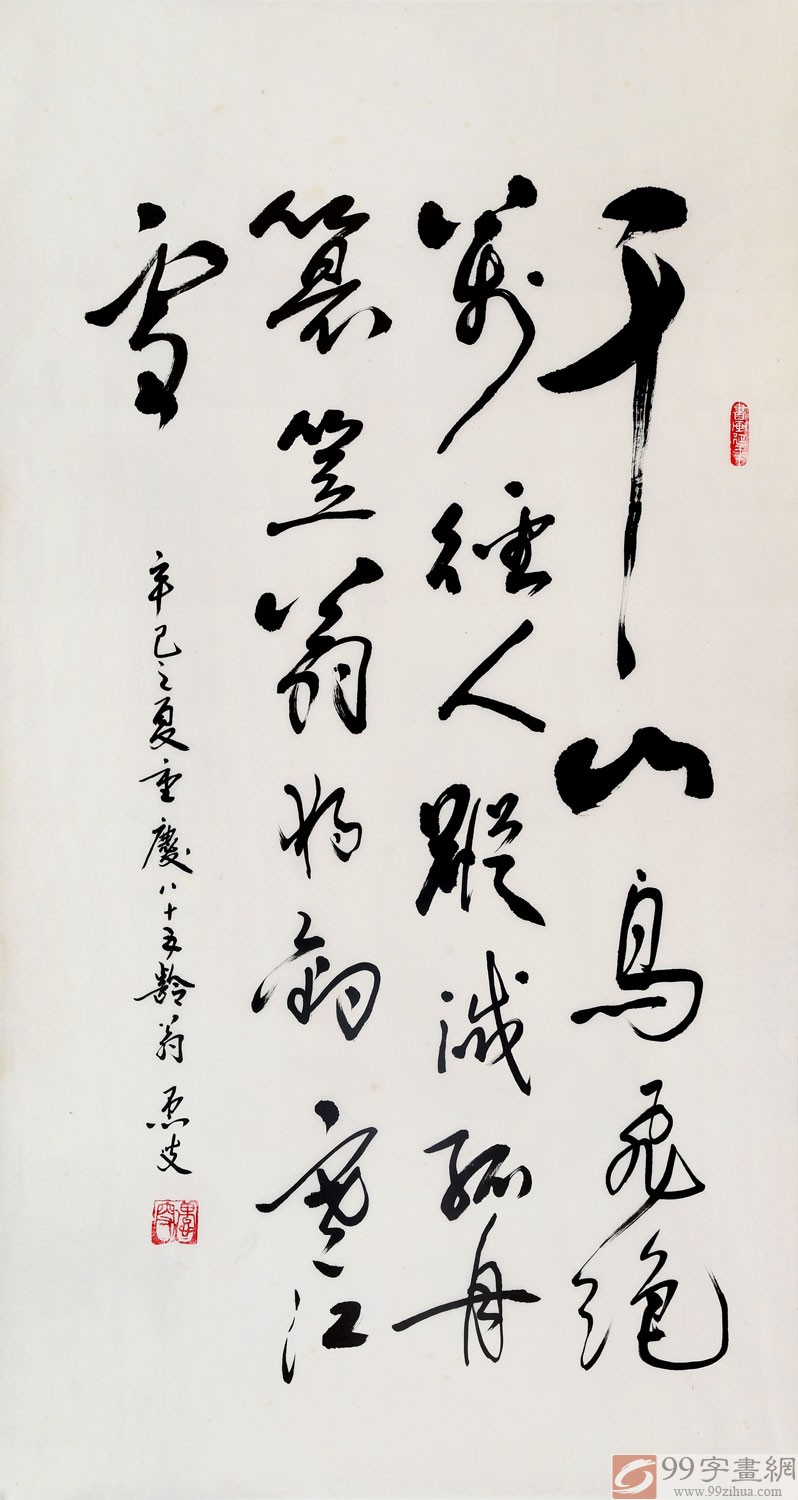 千山鳥飛絕
萬徑人蹤滅孤舟
簑笠翁獨釣寒江
雪
辛巳之夏重慶八十五齡翁
99字畫網
www.99zihua.com